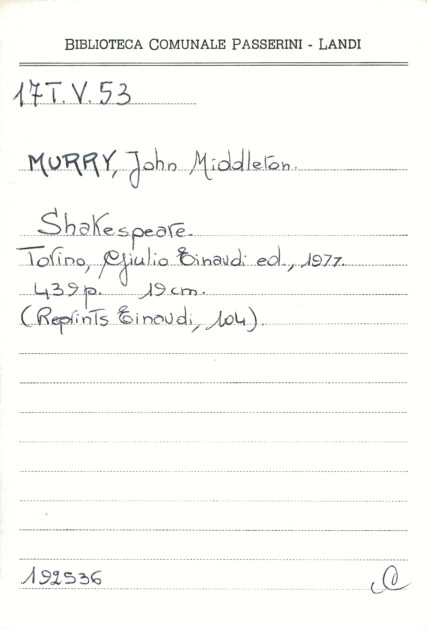 BIBLIOTECA COMUNALE PASSERINI - LANDI
17 T. V. 53
MURRY, John Middleton.
Shakespeare.
Torino, Giulio Einaudi ed., 1977.
439 p. 19 cm.
(Reprints Einaudi, 104).
192536